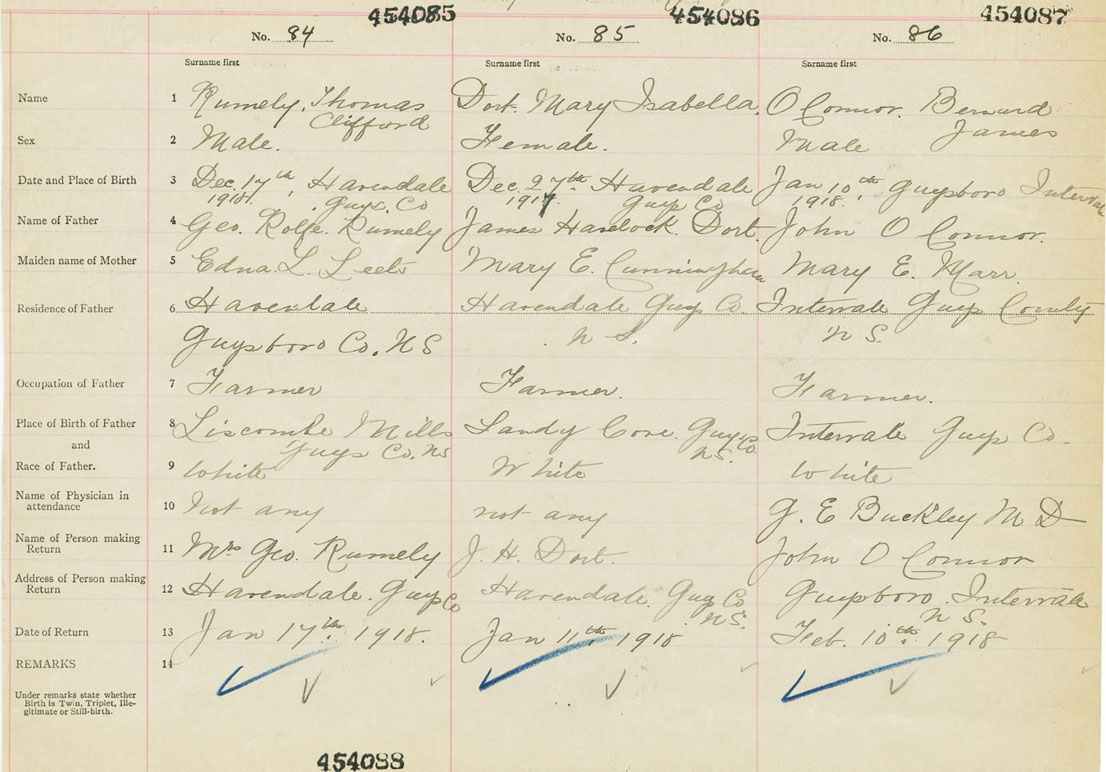 454085 454086 454087
No. 84 No. 85 No. 86
Surname first Surname first Surname first
Name 1 Rumely, Thomas Dort. Mary Isabella. O Connor. Bernard
Clifford James
Sex 2 Male. Female. Male
Date and Place of Birth 3 Dec. 17th, Havendale Dec. 27th Havendale Jan 10th Guysboro Intervale
1918. Guys. Co 1917 Guys Co 1918.
Name of Father 4 Geo. Rolfe. Rumely James Havlock. Dort. John O Connor.
Maiden name of Mother 5 Edna L. Mary E. Cunningham Mary E. Marr
Residence of Father 6 Havendale Havendale Guys Co. Intervale Guys County
Guysboro Co. N S N S. N S.
Occupation of Father 7 Farmer Farmer. Farmer.
Place of Birth of Father 8 Liscombe Mills Sandy Cove. Guys Co Intervale Guys Co.
and Guys Co. NS N S.
Race of Father. 9 White White White
Name of Physician in
attendance 10 Not any not any G. E Buckley M D
Name of Person making
Return 11 Mrs Geo. Rumely J. H. Dort. John O Connor
Address of Person making
Return 12 Havendale. Guys Co Havendale. Guys Co Guysboro. Intervale
N S. N S.
Date of Return 13 Jan 17th 1918. Jan 11th 1918 Feb. 10th. 1918
REMARKS 14
Under remarks state whether
Birth is Twin, Triplet, Ille-
gitimate or Still-birth.
454088